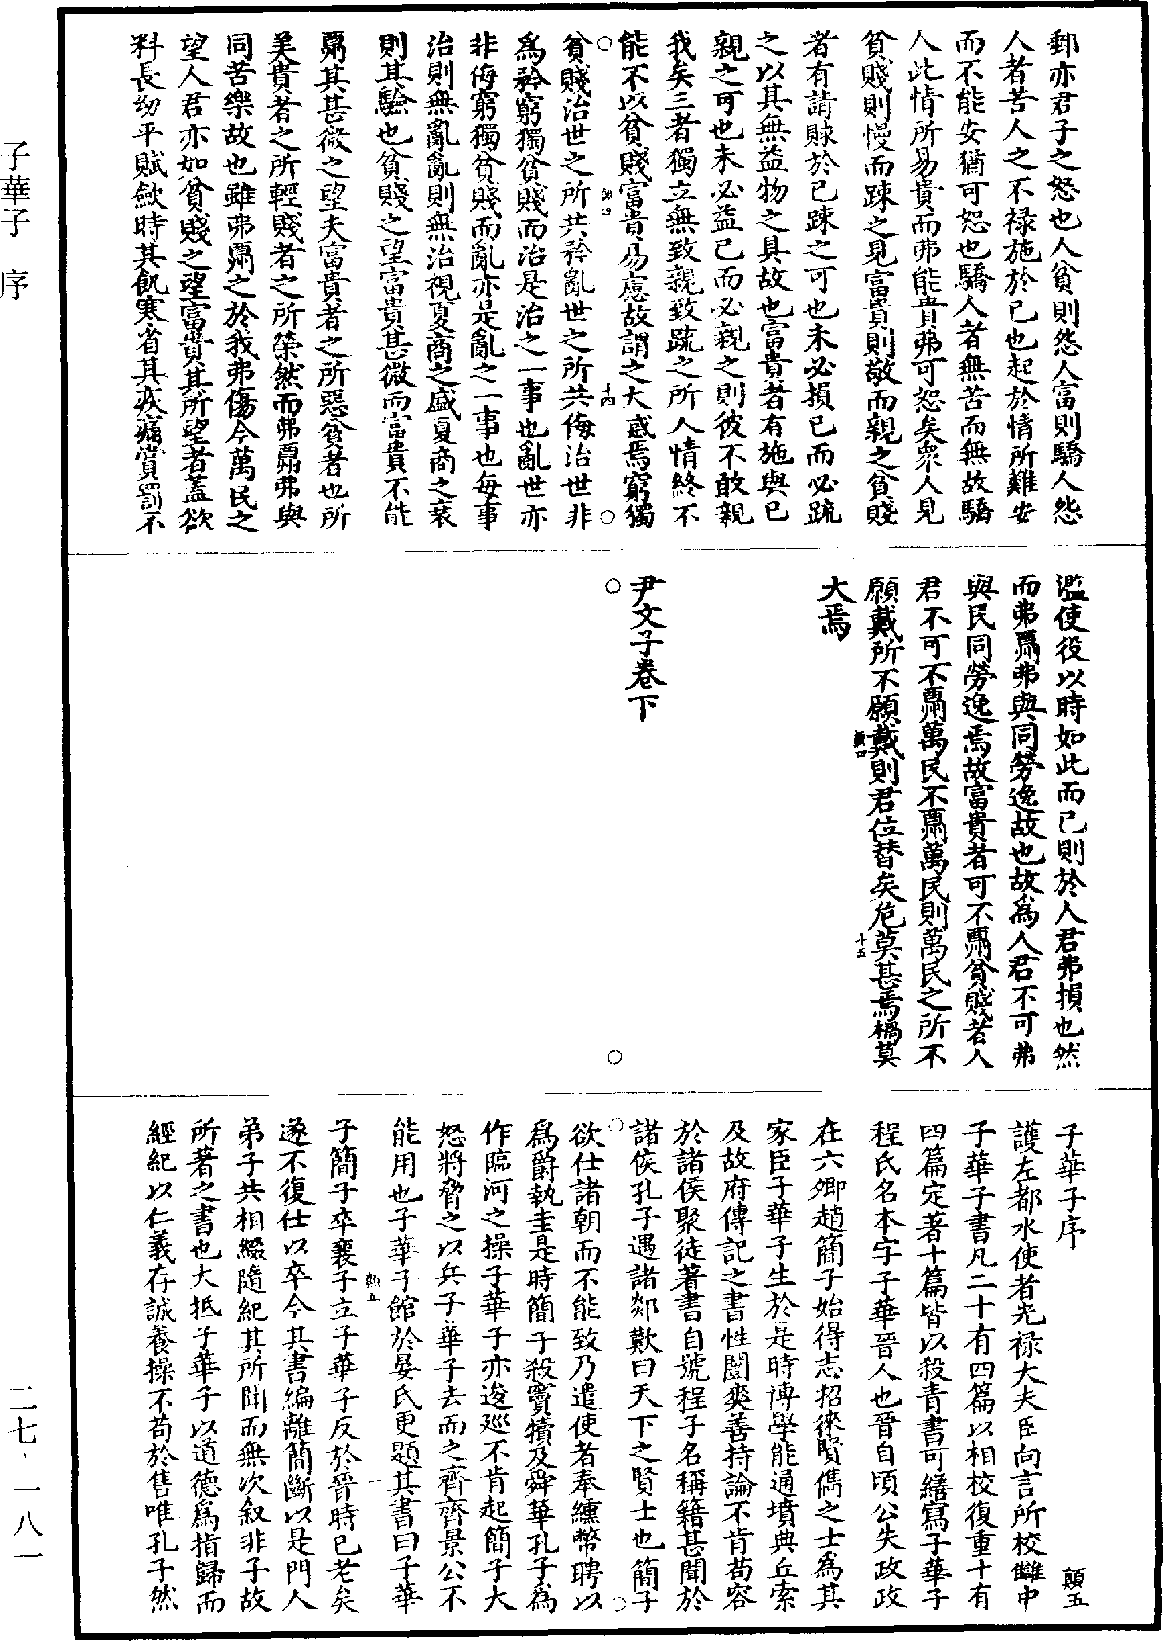 郵亦君子之怒也人貧則怨人富則驕人怨
人者苦人之不祿施於已也起於情所難安
而不能安猶可恕也驕人者無苦而無故驕
人此情所易貴而弗能貴弗可怨矣衆人見
貧賤則慢而踈之見富貴則敬而親之貧賤
者有請賕於已踈之可也未必損已而必疏
之以其無益物之具故也富貴者有施與已
親之可也未必益已而必親之則彼不敢親
我矣三者獨立無致親致疏之所人情終不
能不以貧賤富貴易慮故謂之大惑焉窮獨
貧賤治世之所共矜亂世之所共侮治世非
爲矜窮獨貧賤而治是治之一事也亂世亦
非侮窮獨貧賤而亂亦是亂之一事也每事
治則無亂亂則無治視夏商之盛夏商之衰
則其驗也貧賤之望富貴甚微而富貴不能
酬其甚微之望夫富貴者之所惡貧者也所
美貴者之所輕賤者之所榮然而弗酬弗與
同苦樂故也雖弗酬之於我弗傷今萬民之
望人君亦如貧賤之望富貴其所望者蓋欲
料長幼平賦斂時其飢寒省其疾痛賞罰不
濫使役以時如此而已則於人君弗損也然
而弗酬弗與同勞逸故也故爲人君不可弗
與民同勞逸焉故富貴者可不酬貧賤者人
君不可不酬萬民不酬萬民則萬民之所不
願戴所不願戴則君位替矣危莫甚焉禍莫
大焉
十五
尹文子卷下
子華子序
顛五
護左都水使者光祿大夫臣向言所校讎中
子華子書凡二十有四篇以相校復重十有
四篇定著十篇皆以殺青書可繕寫子華子
程氏名本字子華晉人也晉自頃公失政政
在六卿趙簡子始得志招徠賢儁之士爲其
家臣子華子生於是時博學能通墳典丘索
及故府傳記之書性闓爽善持論不肯苟容
於諸侯聚徒著書自號程子名稱籍甚聞於
諸侯孔子遇諸郯歎曰天下之賢士也簡子
欲仕諸朝而不能致乃遣使者奉纁幣聘以
爲爵執圭是時簡子殺竇犢及舜華孔子爲
作臨河之操子華子亦逡巡不肯起簡子大
怒將脅之以兵子華子去而之齊齊景公不
能用也子華子館於晏氏更題其書曰子華
子簡子卒襄子立子華子反於晉時已老矣
遂不復仕以卒今其書編離簡斷以是門人
弟子共相綴隨紀其所聞而無次叙非子故
所著之書也大抵子華子以道德爲指歸而
經紀以仁義存誠養操不苟於售唯孔子然
子華子　序
二七·一八一